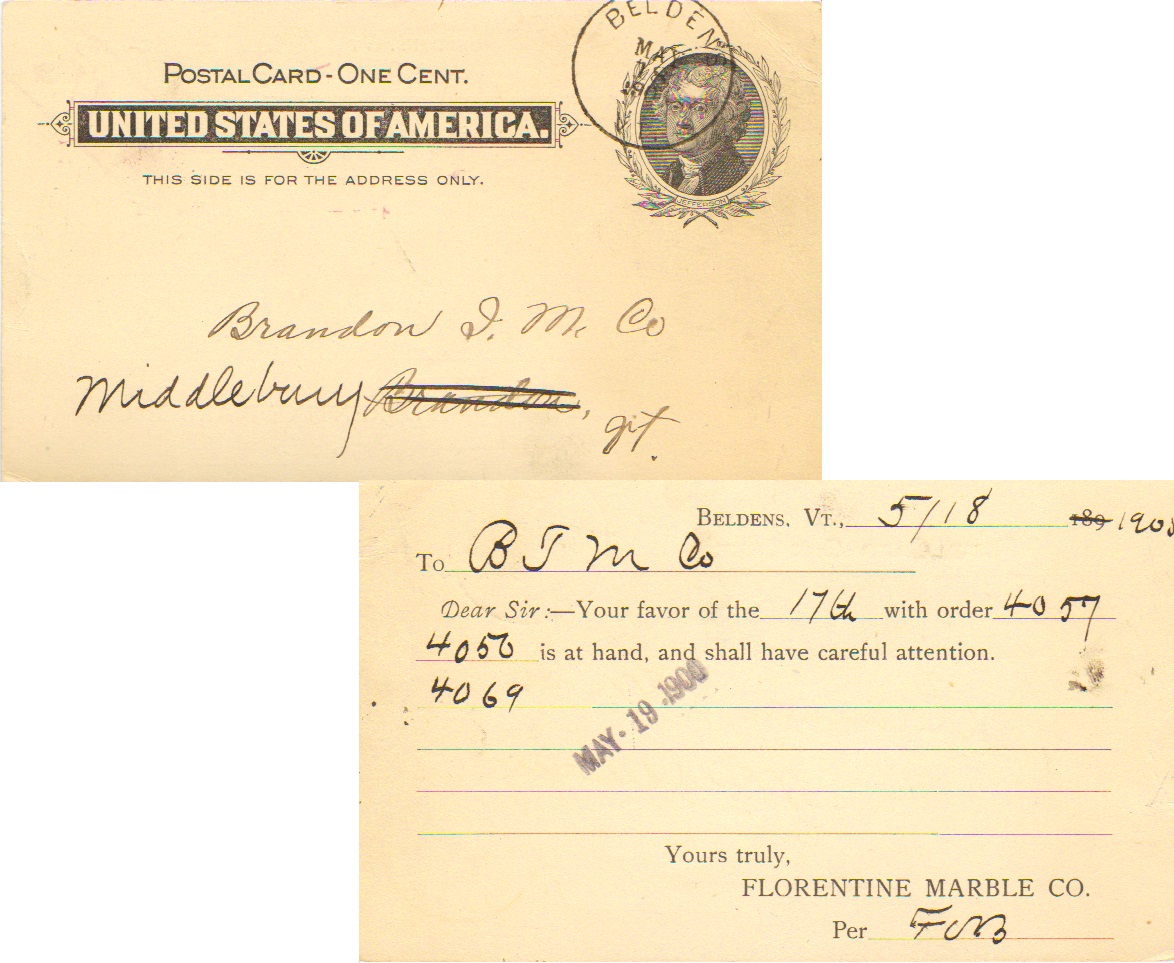 BELDENS
MAY
POSTAL CARD - ONE CENT.
UNITED STATES OF AMERICA.
THIS SIDE IS FOR THE ADDRESS ONLY.
JEFFERSON
Brandon I. M. Co
Middlebury Brandon,
Vt.
BELDENS, VT., 5/18 189 1900
To B I M Co
Dear Sir:—Your favor of the 17th with order 4057
4056 is at hand, and shall have careful attention.
4069
MAY 19 1900
Yours truly,
FLORENTINE MARBLE CO.
Per